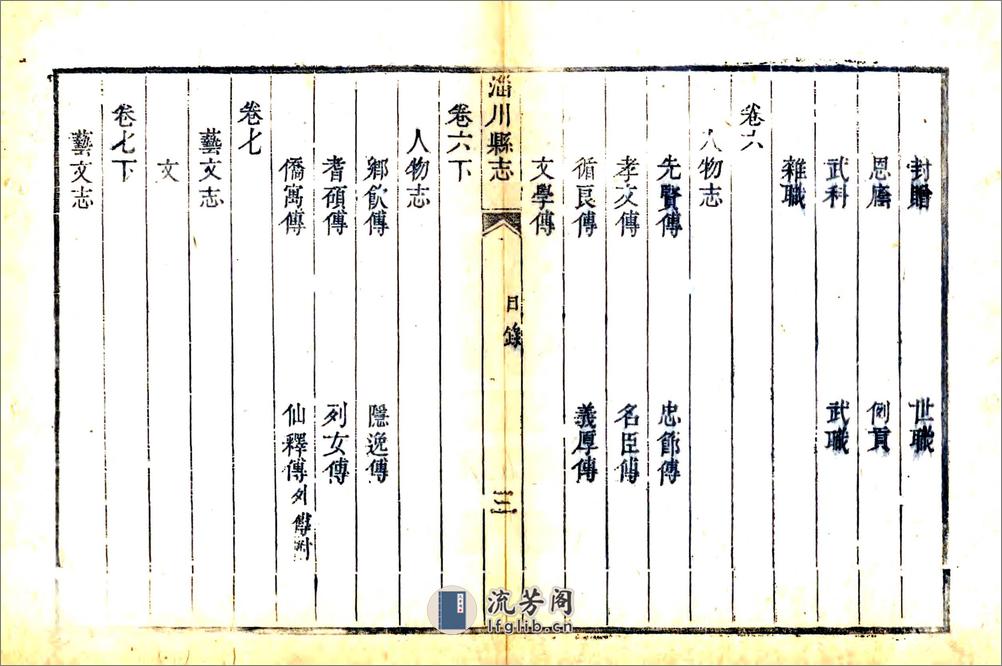 封贈 世職
恩廕 例貢
武科 武職
雜職
卷六
人物志
先賢傳 忠節傳
孝友傳 名臣傳
循良傳 義厚傳
文學傳
淄川縣志
目錄
三
卷六下
人物志
鄉飲傳 隱逸傳
耆碩傳 列女傳
僑寓傳 仙釋傳列傳附
卷七
藝文志
文
卷七下
藝文志
流芳阁
lfglib.cn